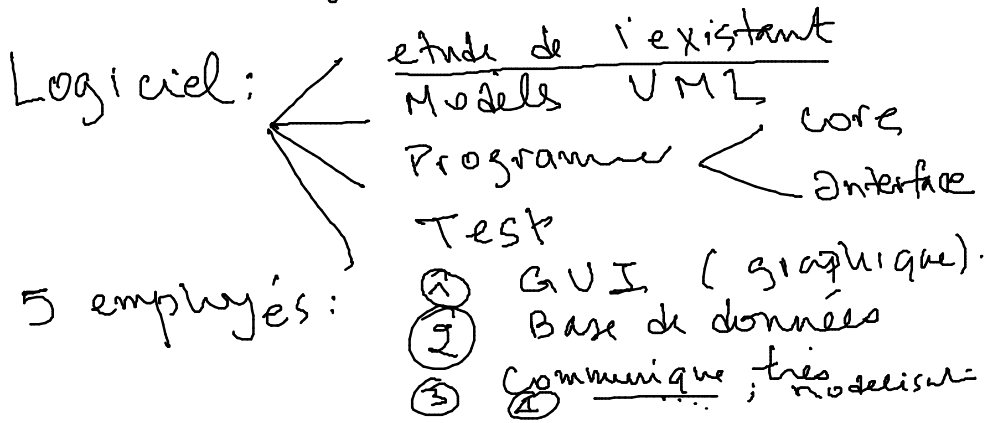 Logiciel :
etude de l'existant
Modèls UML
Programme
core
interface
Test
5 employés :
1 GUI (graphique).
2 Base de données
3 Communique ; très
4 modelisat